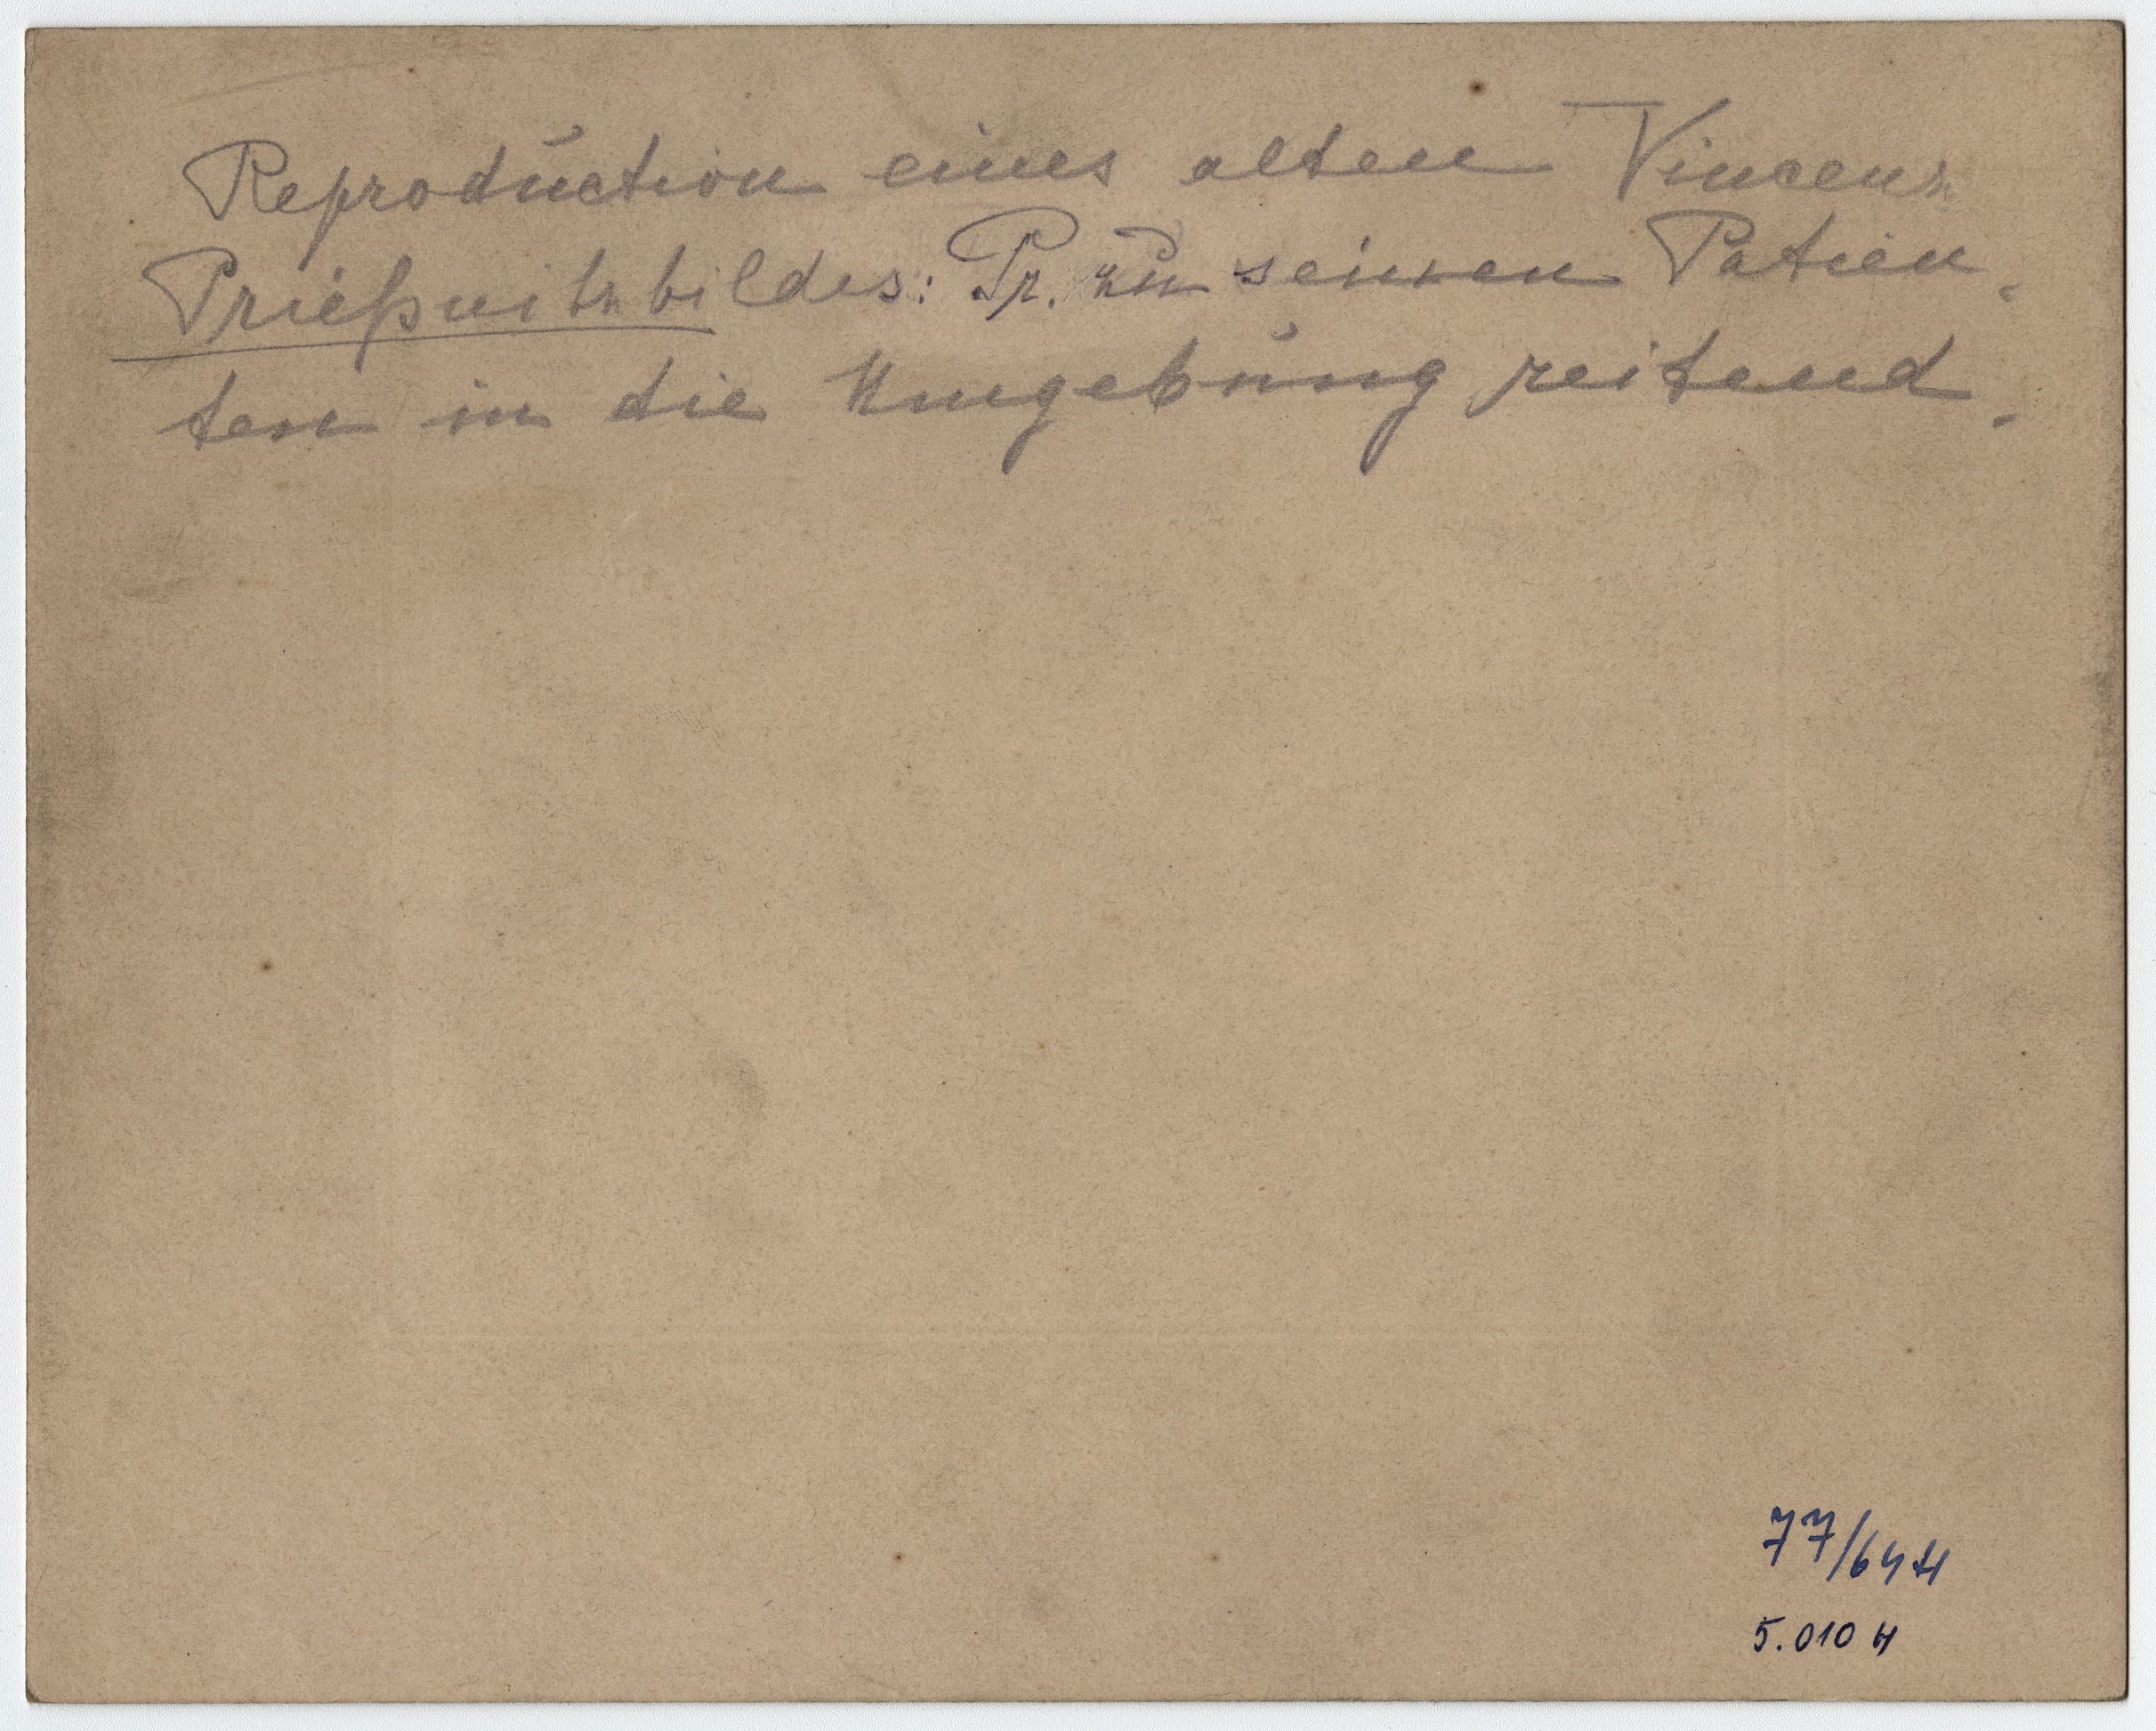 Reproduction eines alten Vincenz
Prießnitzbildes: Pr. zu seinen Patien-
ten in die Umgebung reitend.
77/64 H
5.010 H